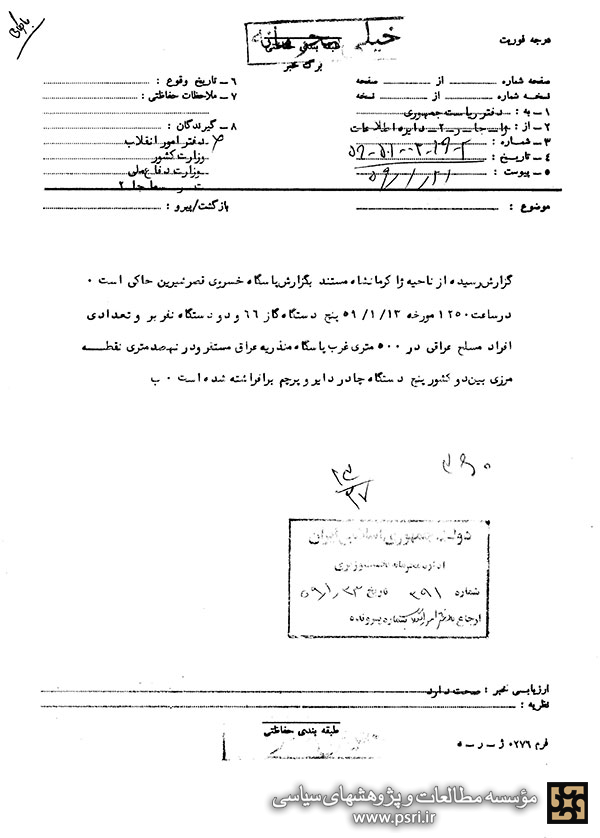 بایگانی
خیلی محرمانه
طبقه بندی حفاظتی
درجه فوریت
برگ خبر
صفحه شماره : از صفحه
نسخه شماره : از نسخه
۱ـ به : دفتر ریاست جمهوری
۲ـ از : واـ جا ـ ر ـ ۲ ـ دایره اطلاعات
۳ـ شماره :
۴ـ تاریخ : ۵۹/۱/۲۱
۵ـ پیوست :
۶ـ تاریخ وقوع :
۷ـ ملاحظات حفاظتی :
۸ـ گیرندگان :
دفتر امور انقلاب
وزارت کشور
وزارت دفاع ملی
موضوع :
بازگشت/پیرو :
گزارش رسیده از ناحیه ژا کرمانشاه مستند بگزارش پاسگاه خسروی قصرشیرین حاکی است ۰
درساعت ۱۲۵۰ مورخه ۵۹/۱/۱۳ پنج دستگاه گاز ۶۶ و دو دستگاه نفربر و تعدادی
افراد مسلح عراقی در ۵۰۰ متری غرب پاسگاه منذریه عراق مستقر و در نهصدمتری نقطه
مرزی بین دو کشور پنج دستگاه چادر دایر و پرچم برافراشته شده است ۰ ب
دولت جمهوری اسلامی ایران
اداره محرمانه نخست وزیری
شماره ۳۹۱ تاریخ ۵۹/۱/۲۳
ارجاع بدفتر امور انقلاب شماره پرونده
ارزیابی خبر : صحت دارد
نظریه :
طبقه بندی حفاظتی
فرم ۰۲۷۶ ژ ـ ر ـ ۵
مؤسسه مطالعات و پژوهشهای سیاسی
www.psri.ir